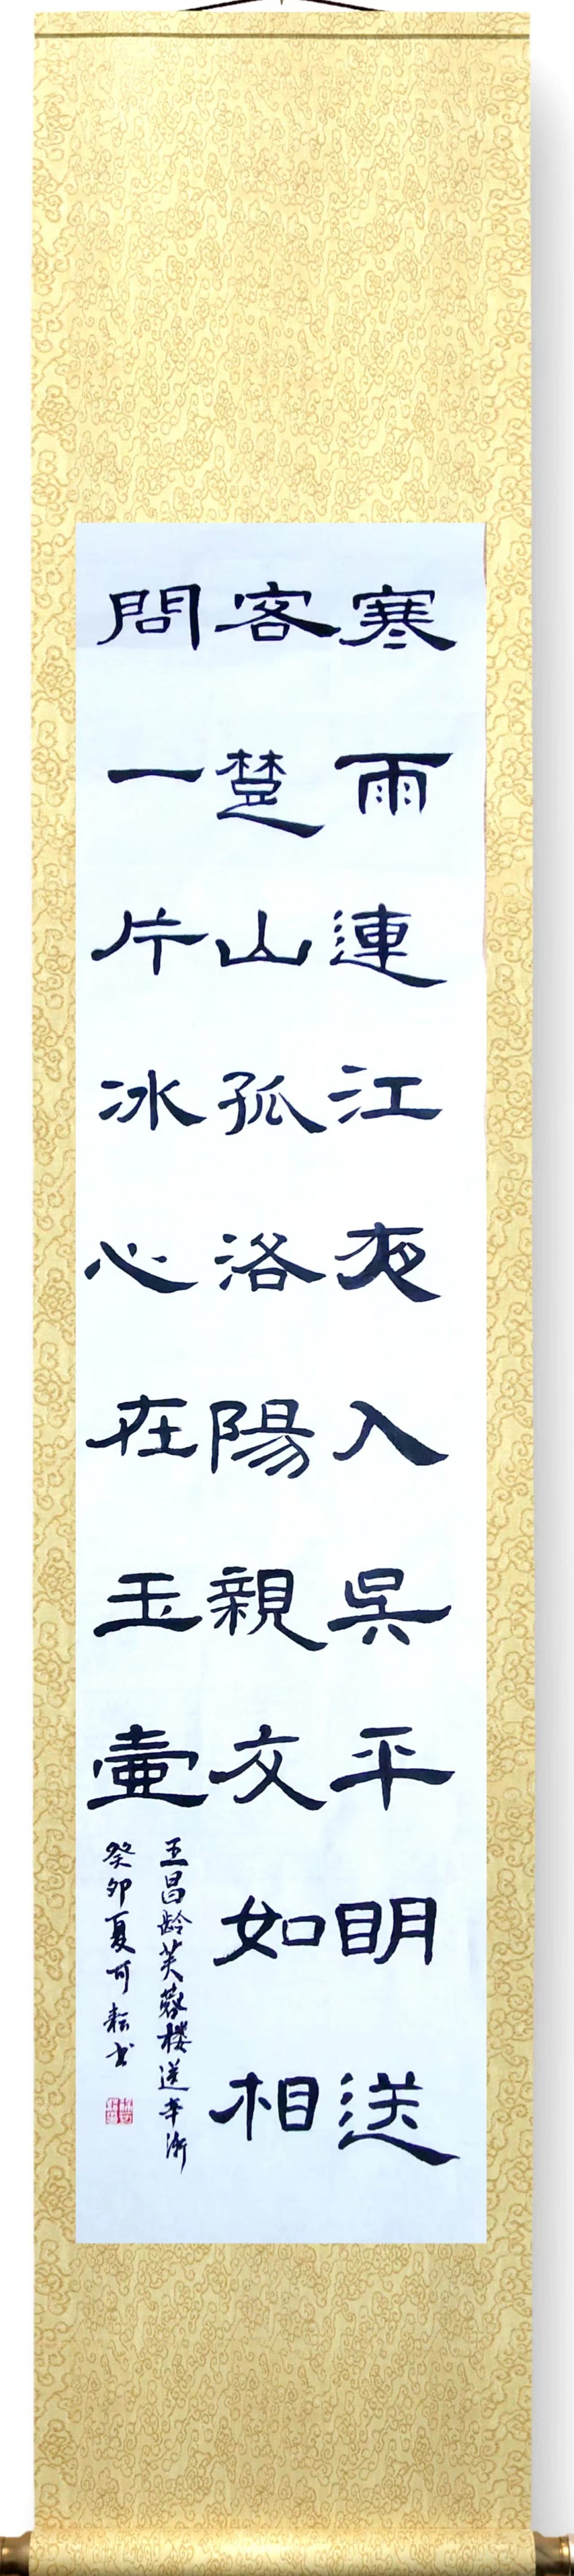 寒雨連江夜入吳平明送
客楚山孤洛陽親友如相
問一片冰心在玉壺
王昌龄芙蓉楼送辛渐
癸卯夏可耘书